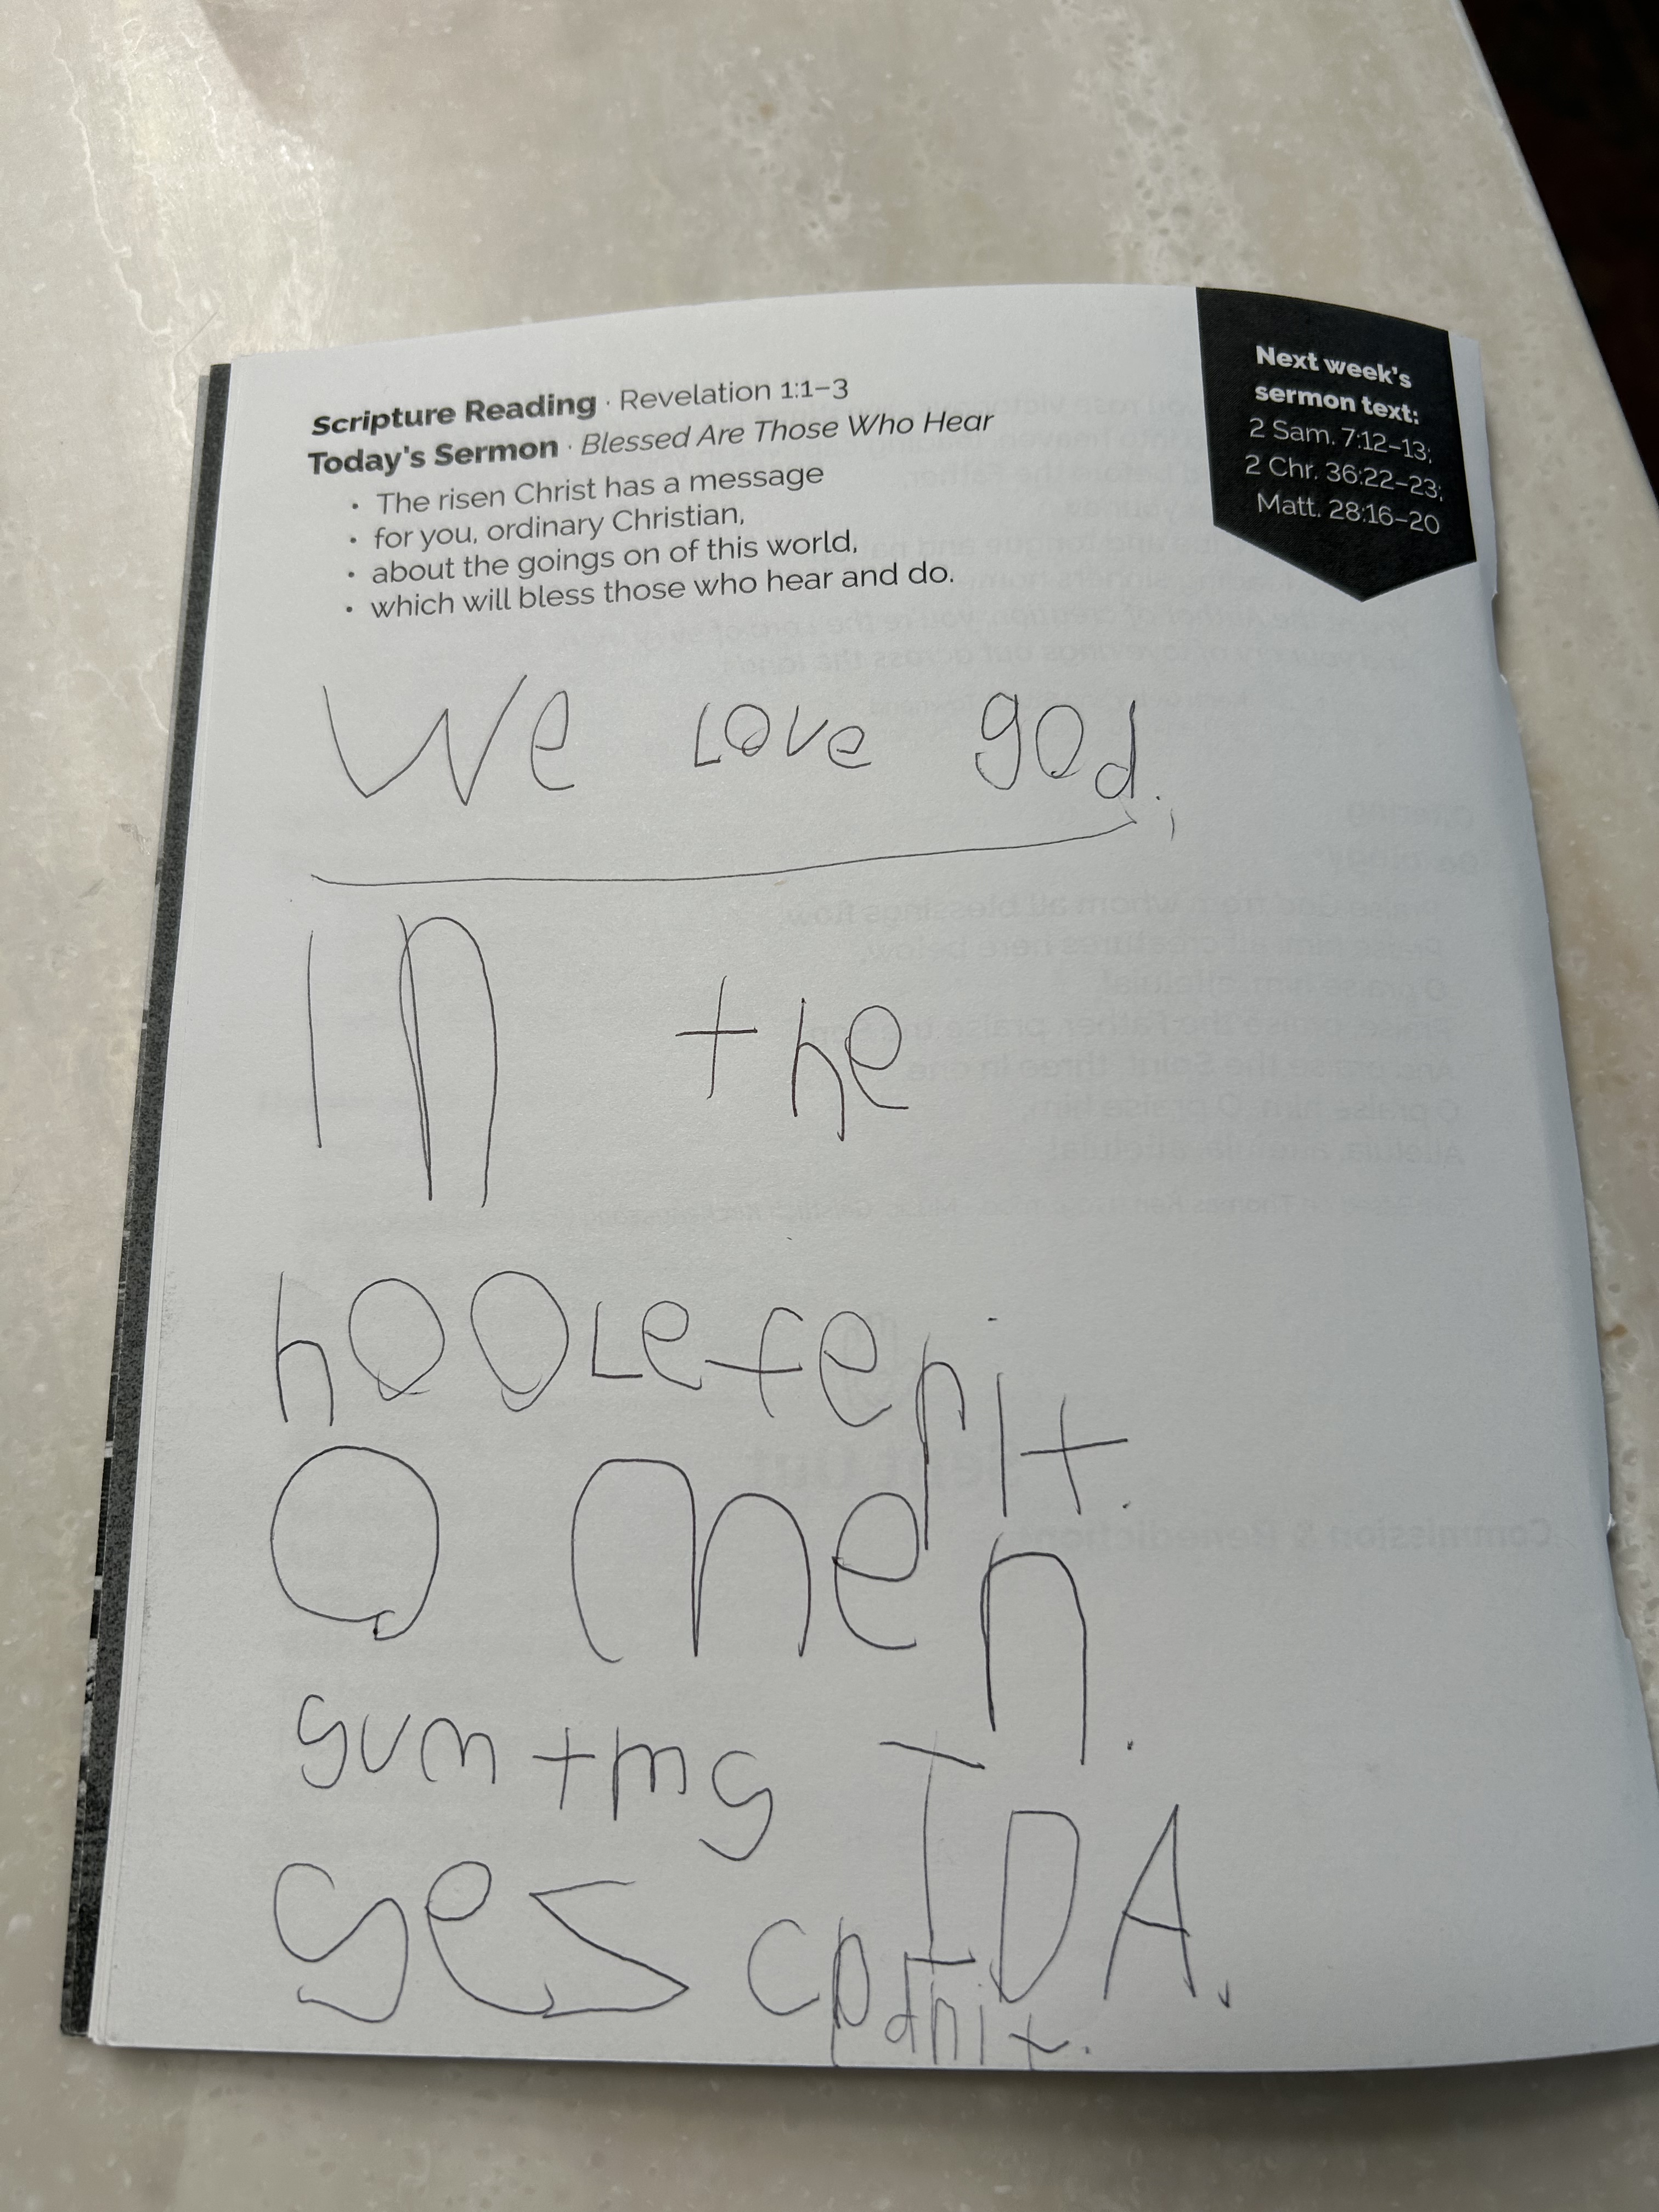 Scripture Reading · Revelation 1:1–3
Today's Sermon · Blessed Are Those Who Hear
• The risen Christ has a message
• for you, ordinary Christian,
• about the goings on of this world,
• which will bless those who hear and do.
Next week's
sermon text:
2 Sam. 7:12–13;
2 Chr. 36:22–23;
Matt. 28:16–20
We Love god.
In the
hooLe fepit.
O men.
sumtmg IDA.
ges